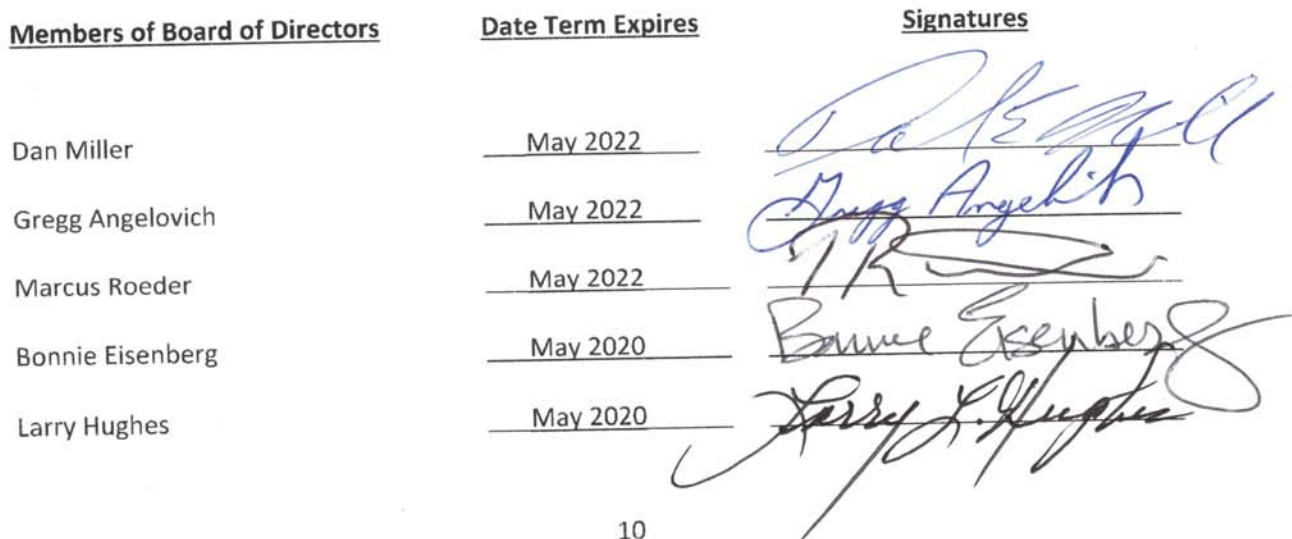 Members of Board of Directors Date Term Expires Signatures
Dan Miller May 2022
Gregg Angelovich May 2022 Gregg Angelovich
Marcus Roeder May 2022
Bonnie Eisenberg May 2020 Bonnie Eisenberg
Larry Hughes May 2020 Larry L. Hughes
10